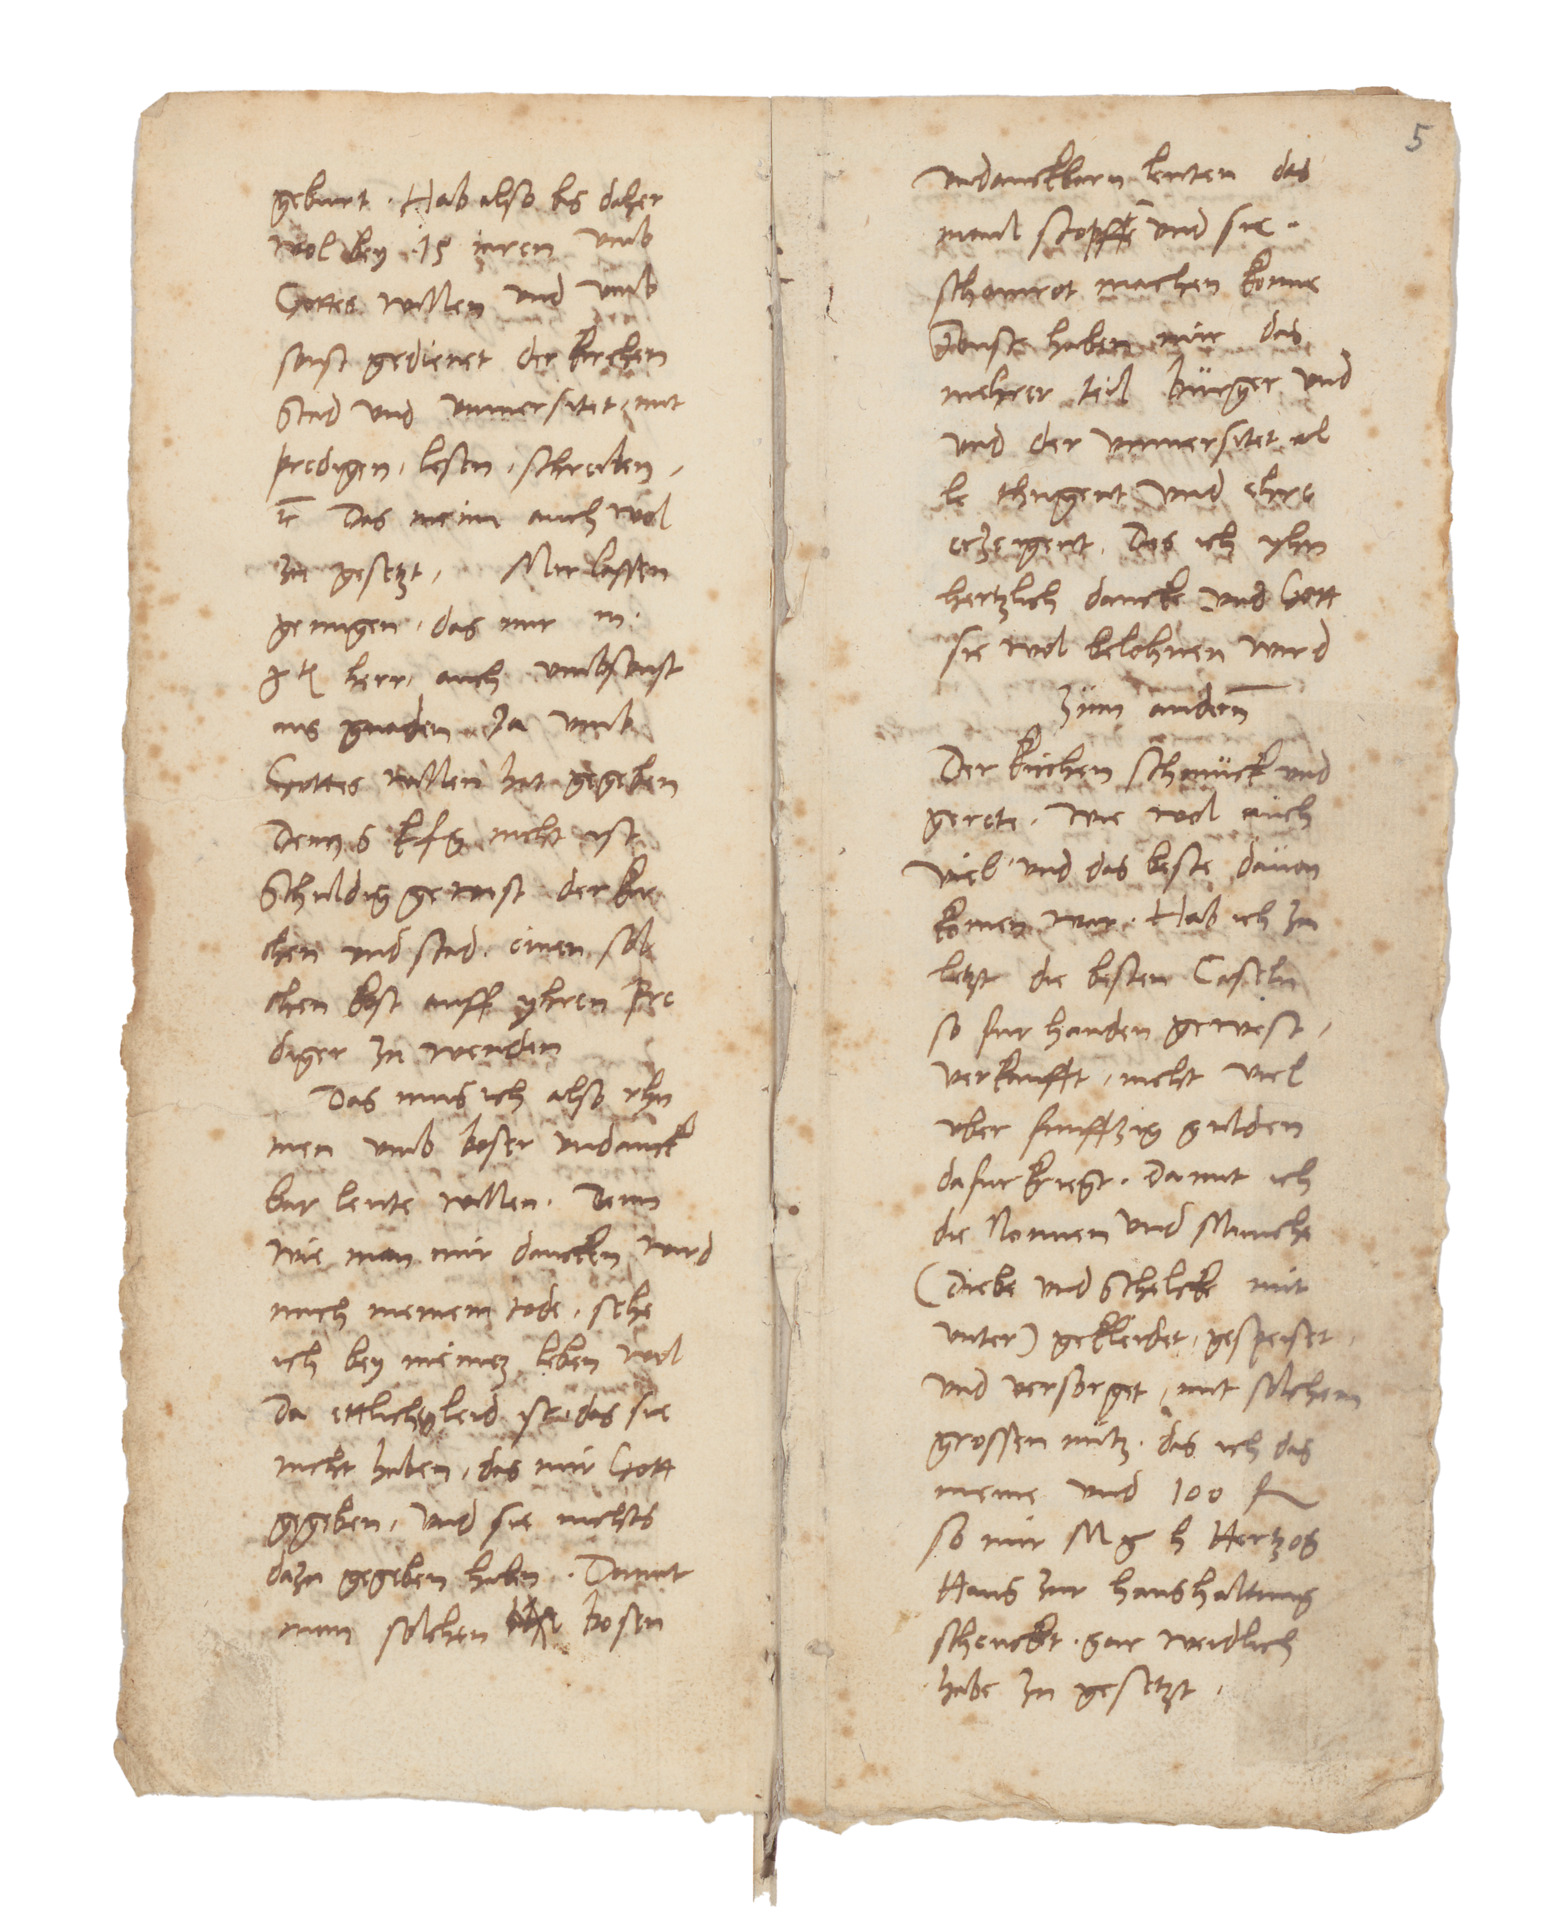 geburt. Hab also bis daher
wol bey .15 iaren vmb
Gottes willen vnd vmb
sonst gedienet der kirchen
Stad vnd vniuersitet, mit
predigen, lesen, schreiben,
ꝛc Das meine auch wol
zu gesetzt, Mir lassen
genugen, das mir m.
gt herr, auch vmbsonst
aus gnaden Ja vmb
Gottes willen hat gegeben
Denn s kfg nicht ist
Schuldig gewest der kir
chen vnd stad. einen sol
chen kost auff yhren pre
diger zu wenden
Das mus ich also rhu
men vmb boser vndanck
bar leute willen. Denn
wie man mir dancken wird
nach meinem tode, sehe
ich bey meinem leben wol
Da ettlichen leid ist, das sie
nicht haben, das mir Gott
gegeben, vnd sie nichts
dazu gegeben haben. Damit
man solchen bosen
5
vndanckbarn leuten das
maul stopffe vnd sie.
schamrot machen konne
Sonst haben mir das
mehrer teil bürger vnd
vnd der vniuersitet al
le thugent vnd ehre
erzeigent. Des ich yhn
hertzlich dancke vnd Gott
sie wol belohnen wird
Zum andern
Der kirchen schmuck vnd
gerete. Wie wol auch
viel vnd das beste dauon
komen war. Hab ich zu
letzt die besten Caseln
so fur handen gewest,
verkaufft, nicht viel
vber funffzig gulden
dafur kriegt. Damit ich
die Nonnen vnd Munche
(Diebe vnd Schelcke mit
vnter) gekleidet, gespeiset,
vnd versorget, mit solchem
grossen nutz, das ich das
meine vnd 100 fl
so mir M g h Hertzog
Hans zur haushaltung
schenckt. gar weidlich
habe zu gesetzt,